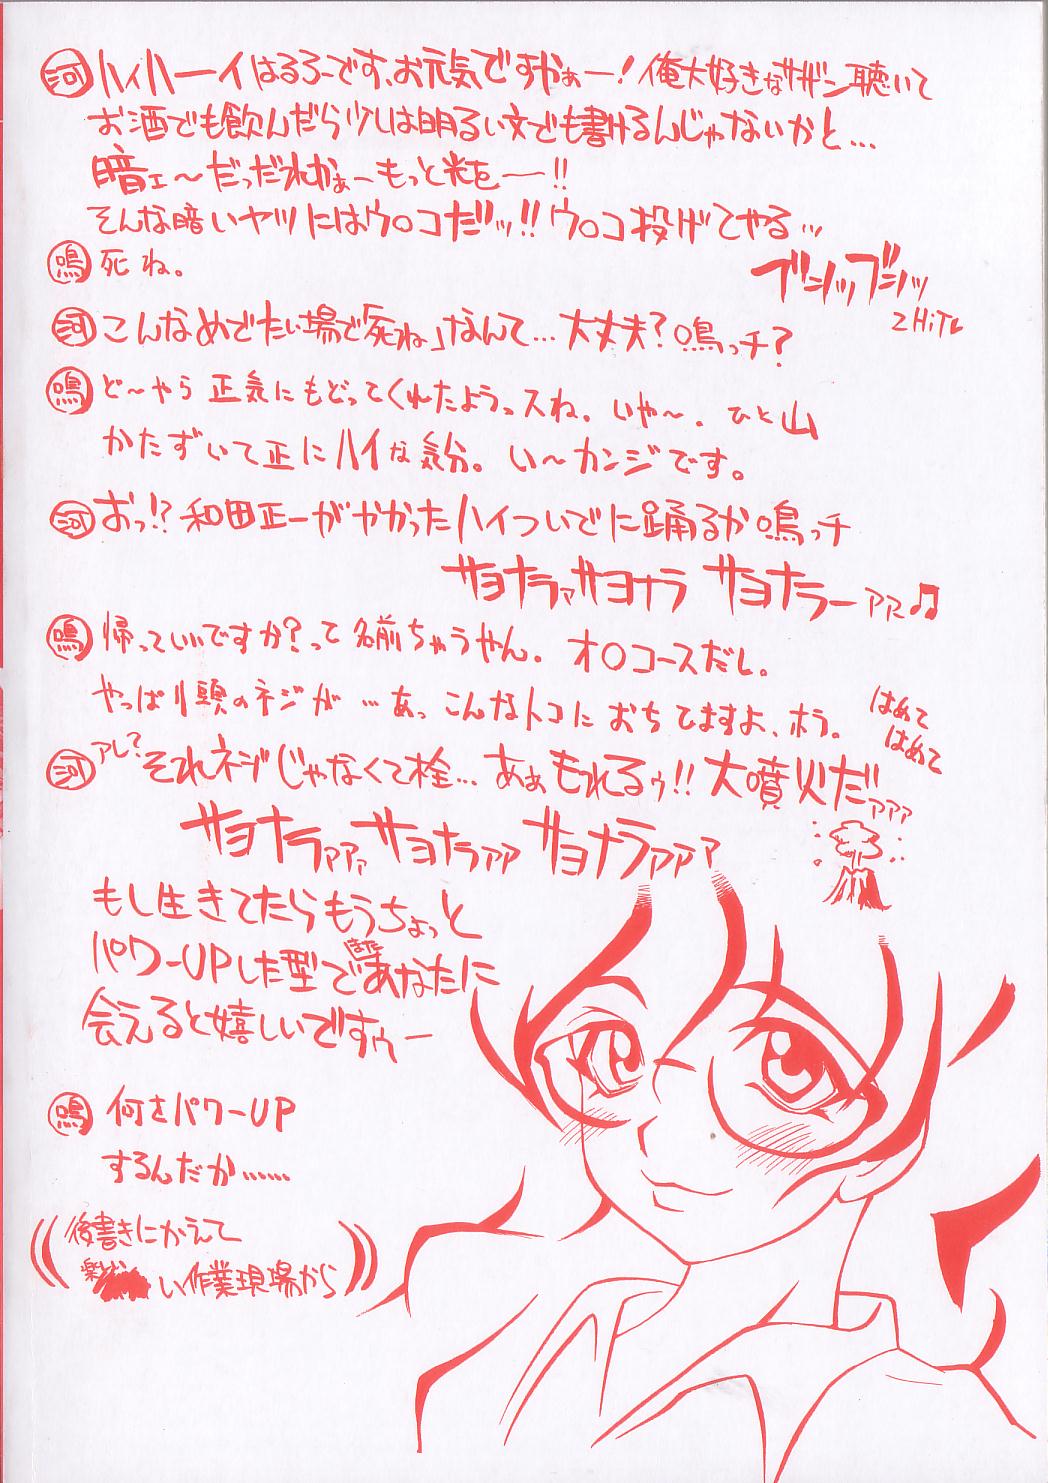 河 ハイハーイはるろーです、お元気ですかぁー！俺大好きなサザン聴いて
お酒でも飲んだら少しは明るい文でも書けるんじゃないかと…
暗ェ～だっだれかぁーもっと光を――!!
そんな暗いヤツにはウ○コだッ!!ウ○コ投げてやる…
ブシッブシッ
2HiTv
鳴 死ね。
河 こんなめでたい場で「死ね」なんて…大丈夫？鳴っチ？
鳴 ど～やら正気にもどってくれたようっスね。いや～。ひと山
かたずいて正にハイな気分。い～カンジです。
河 おっ!?和田正一がやかったハイついでに踊るか鳴っチ
サヨナラァサヨナラ サヨナラーァァ♫
鳴 帰っていいですか？って名前ちゃうやん。オ○コースだし。
やっぱり頭のネジが…あっこんなトコにおちてますよ、ホラ。
はめて
はめて
河 アレ？それネジじゃなくて栓…あぁもれるゥ!!大噴火だァァァ
サヨナラァァァサヨナラァァサヨナラァァァ
もし生きてたらもうちょっと
パワーUPした型であなたに
会えると嬉しいですゥー
鳴 何をパワーUP
するんだか……
後書きにかえて
楽しい作業現場から